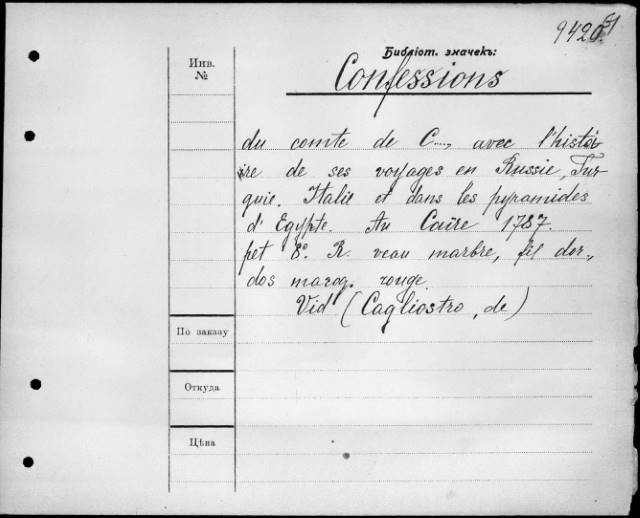 9420
Библіот. значекъ:
Инв.
№
Confessions
du comte de C...., avec l'histoi
re de ses voyages en Russie, Tur
quie. Italie et dans les pyramides
d'Egypte. Au Caire 1787.
pet 8°. R. veau marbre, fil dor.,
dos maroq. rouge.
Vid (Cagliostro, de)
По заказу
Откуда
Цѣна